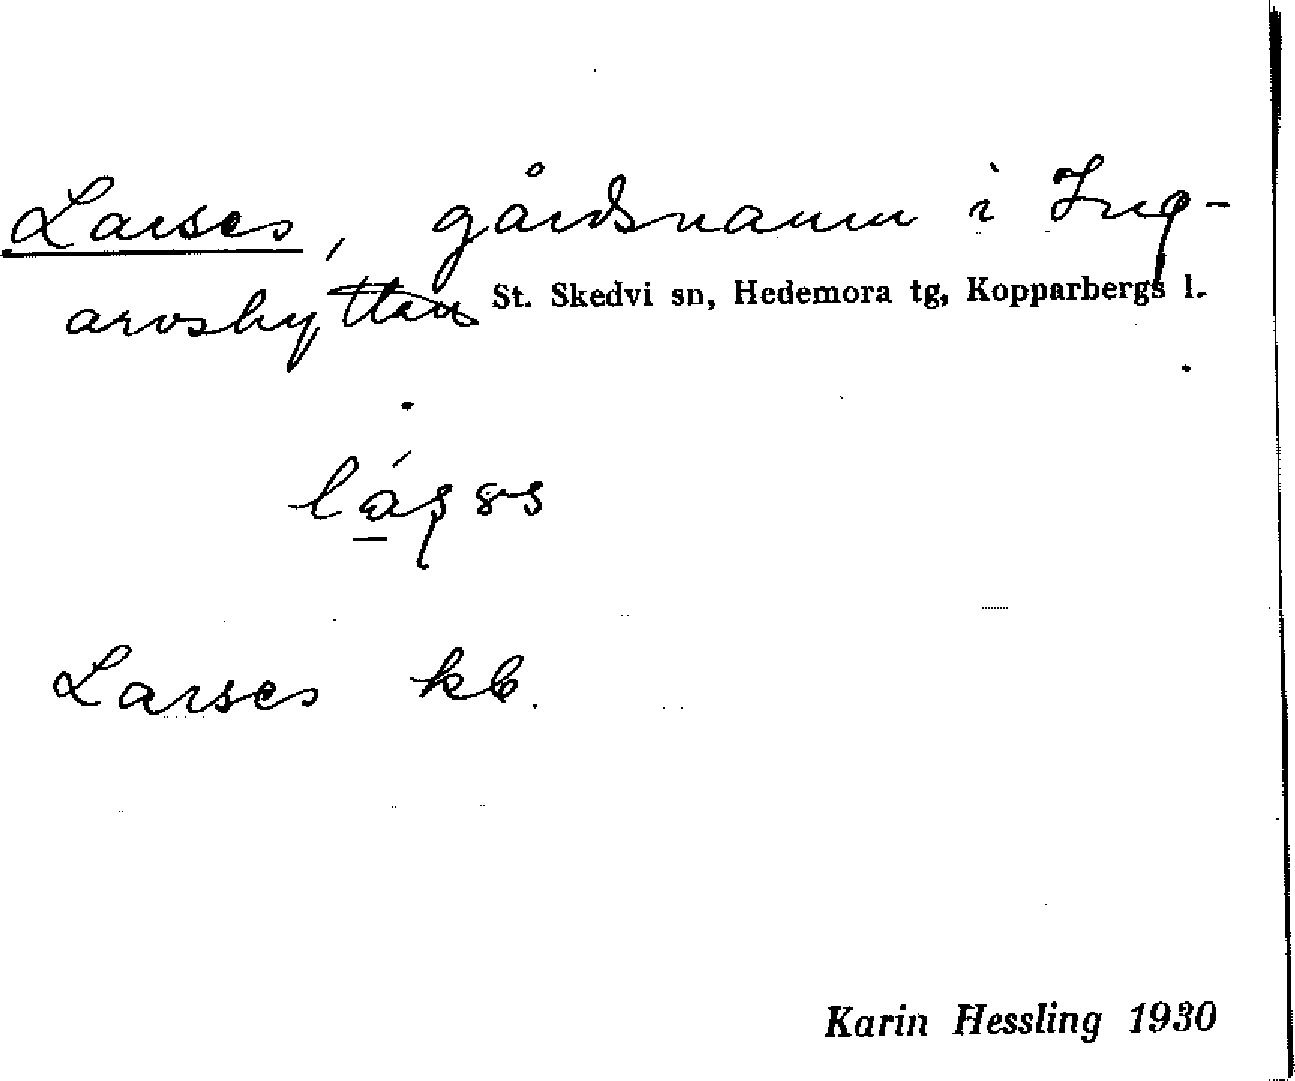 Larses, gårdsnamn i Ing-
arvshyttan St. Skedvi sn, Hedemora tg, Kopparbergs l.
Larses kb.
Karin Hessling 1930